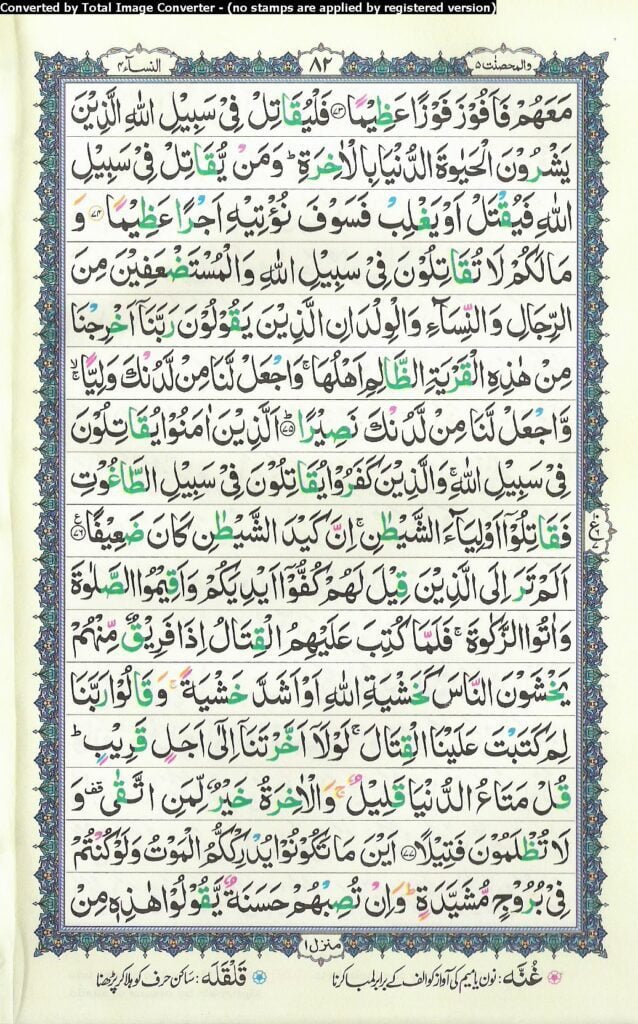 Converted by Total Image Converter - (no stamps are applied by registered version)
والمحصنت ۵
۸۲
النسآء ۴
مَعَهُمْ فَاَفُوْزَ فَوْزًا عَظِيْمًا ۷۳ فَلْيُقَاتِلْ فِىْ سَبِيْلِ اللّٰهِ الَّذِيْنَ
يَشْرُوْنَ الْحَيٰوةَ الدُّنْيَا بِالْاٰخِرَةِ ؕ وَمَنْ يُّقَاتِلْ فِىْ سَبِيْلِ
اللّٰهِ فَيُقْتَلْ اَوْ يَغْلِبْ فَسَوْفَ نُؤْتِيْهِ اَجْرًا عَظِيْمًا ۷۴ وَ
مَا لَكُمْ لَا تُقَاتِلُوْنَ فِىْ سَبِيْلِ اللّٰهِ وَالْمُسْتَضْعَفِيْنَ مِنَ
الرِّجَالِ وَالنِّسَآءِ وَالْوِلْدَانِ الَّذِيْنَ يَقُوْلُوْنَ رَبَّنَاۤ اَخْرِجْنَا
مِنْ هٰذِهِ الْقَرْيَةِ الظَّالِمِ اَهْلُهَا ۚ وَاجْعَلْ لَّنَا مِنْ لَّدُنْكَ وَلِيًّا ۙۚ
وَّاجْعَلْ لَّنَا مِنْ لَّدُنْكَ نَصِيْرًا ؕ ۷۵ اَلَّذِيْنَ اٰمَنُوْا يُقَاتِلُوْنَ
فِىْ سَبِيْلِ اللّٰهِ ۚ وَالَّذِيْنَ كَفَرُوْا يُقَاتِلُوْنَ فِىْ سَبِيْلِ الطَّاغُوْتِ
فَقَاتِلُوْۤا اَوْلِيَآءَ الشَّيْطٰنِ ۚ اِنَّ كَيْدَ الشَّيْطٰنِ كَانَ ضَعِيْفًا ۷۶ ع
ع ۷
اَلَمْ تَرَ اِلَى الَّذِيْنَ قِيْلَ لَهُمْ كُفُّوْۤا اَيْدِيَكُمْ وَاَقِيْمُوا الصَّلٰوةَ
وَاٰتُوا الزَّكٰوةَ ۚ فَلَمَّا كُتِبَ عَلَيْهِمُ الْقِتَالُ اِذَا فَرِيْقٌ مِّنْهُمْ
يَخْشَوْنَ النَّاسَ كَخَشْيَةِ اللّٰهِ اَوْ اَشَدَّ خَشْيَةً ۚ وَقَالُوْا رَبَّنَا
لِمَ كَتَبْتَ عَلَيْنَا الْقِتَالَ ۚ لَوْلَاۤ اَخَّرْتَنَاۤ اِلٰۤى اَجَلٍ قَرِيْبٍ ؕ
قُلْ مَتَاعُ الدُّنْيَا قَلِيْلٌ ۚ وَالْاٰخِرَةُ خَيْرٌ لِّمَنِ اتَّقٰى قف وَ
لَا تُظْلَمُوْنَ فَتِيْلًا ۷۷ اَيْنَ مَا تَكُوْنُوْا يُدْرِكْكُّمُ الْمَوْتُ وَلَوْ كُنْتُمْ
فِىْ بُرُوْجٍ مُّشَيَّدَةٍ ؕ وَاِنْ تُصِبْهُمْ حَسَنَةٌ يَّقُوْلُوْا هٰذِهٖ مِنْ
منزل ۱
غُنَّه: نون یا میم کی آواز کو الف کے برابر لمبا کرنا
قَلْقَلَه: ساکن حرف کو ہلا کر پڑھنا